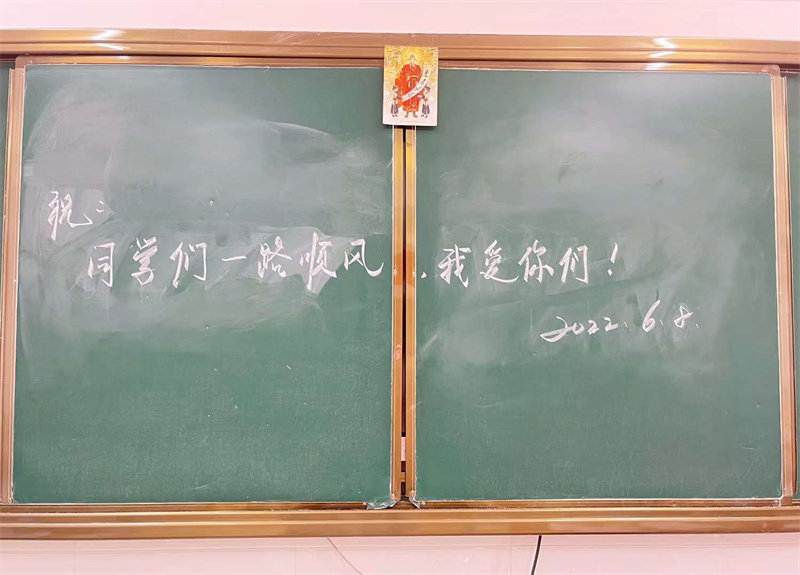 祝:
同学们一路顺风,我爱你们!
2022.6.8.